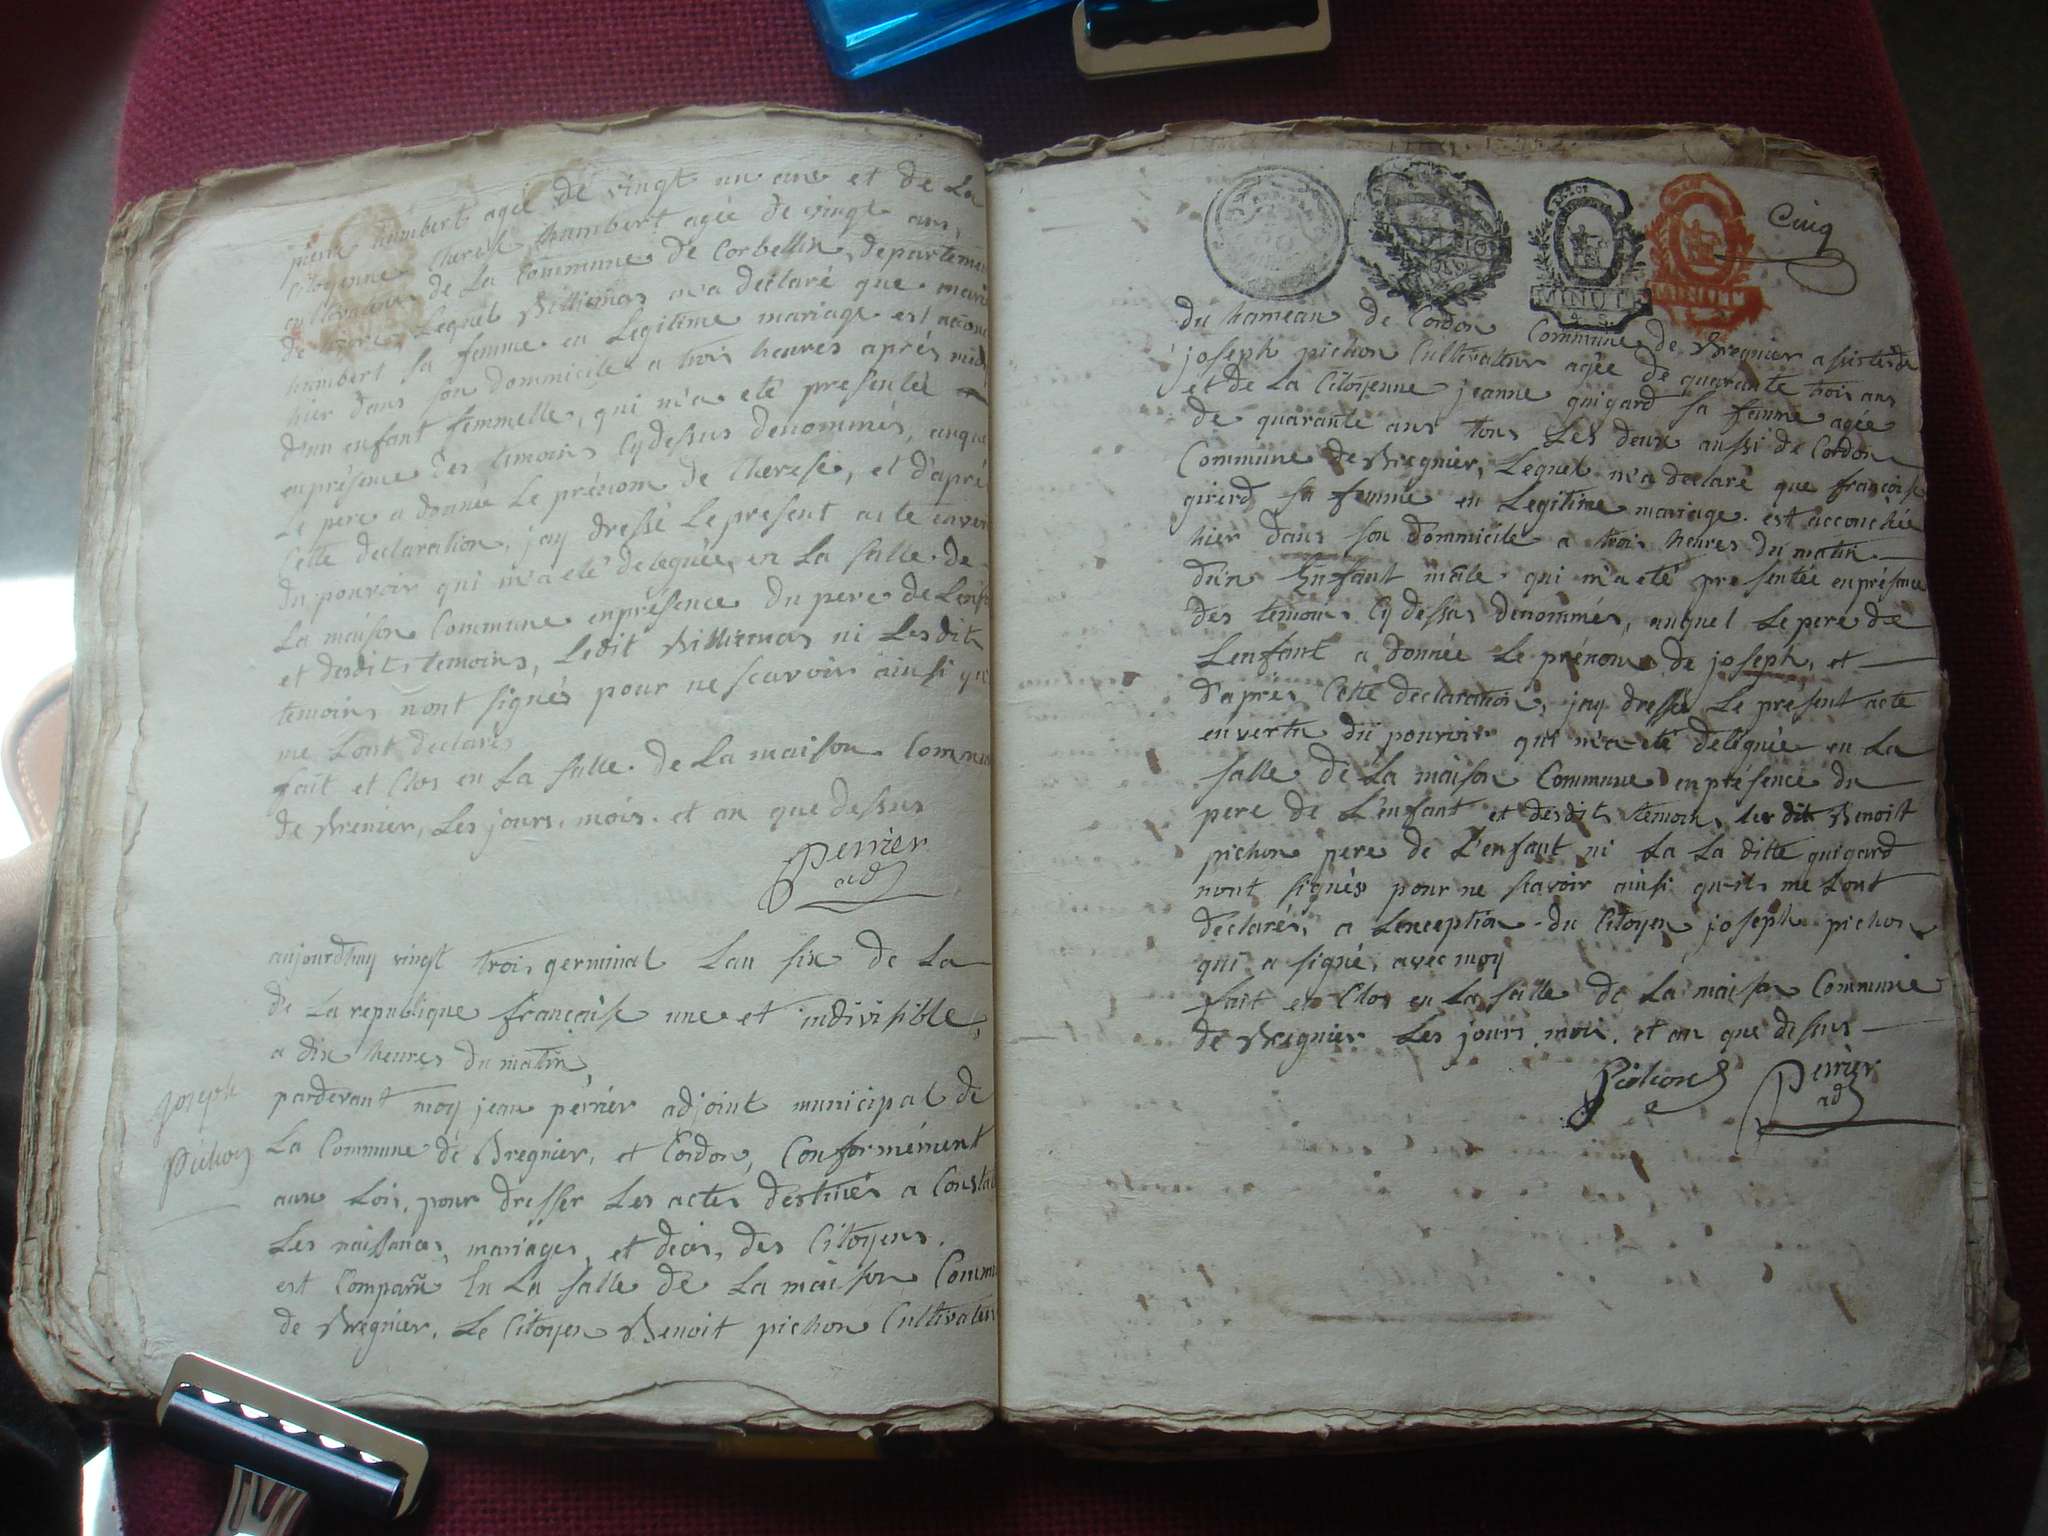 pierre humbert agée de vingt un ans et de La
Citoyenne therese humbert agée de vingt ans,
cultivateurs de La Commune de Corbellin, departement
de Lequel Billiemas m'a declaré que marie
humbert sa femme en Legitime mariage est
hier dans son dommicile a trois heures après midy
d'un enfant femmelle, qui m'a eté presentée
en présence des temoins Cy dessus denommés, auquel
Le pere a donnée Le prénom de therese, et d'après
Cette declaration, jay dressé Le present acte en vertu
du pouvoir qui m'a eté deleguée en La salle de
La maison Commune en présence du pere de Lenfant
et desdits temoins, Ledit Billiemas ni Lesdits
temoins n'ont signés pour ne scavoir ainsi qu'il
me Lont declarés
fait et Clos en La salle de La maison Commune
de Brenier, Les jours, mois, et an que dessus
Perrier
adj
aujourdhuy vingt trois germinal Lan six de La
de La republique française une et indivisible,
a dix heures du matin,
joseph
pichon
pardevant moy jean perrier adjoint municipal de
La Commune de Bregnier, et Cordon, Conformément
aux Lois, pour dresser Les actes destinés a Constater
Les naissances, mariages, et decès, des Citoyens.
est Comparu En La salle de La maison Commune
de Bregnier, Le Citoyen Benoit pichon Cultivateur
MINUTE
Cinq
du hameau de Cordon Commune de Bregnier assisté de
joseph pichon Cultivateur agée de quarante trois ans
et de La Citoyenne jeanne guigard sa femme agée
de quarante ans tous Les deux aussi de Cordon
Commune de Bregnier, Lequel m'a declaré que françoise
girerd sa femme en Legitime mariage est accouchée
hier dans son dommicile a trois heures du matin
d'un Enfant mâle qui m'a eté presentée en présence
des temoins Cy dessus denommés, auquel Le pere de
Lenfant a donnée Le prénom de joseph, et
d'après Cette declaration, jay dressé Le présent acte
en vertu du pouvoir qui m'a eté deléguée en La
salle de La maison Commune en présence du
pere de L'enfant et desdits temoins, Benoit
pichon pere de L'enfant ni La La ditte guigard
n'ont signés pour ne scavoir ainsi qu'ils me Lont
declarés, a Lexception du Citoyen joseph pichon
qui a signé, avec moy
fait et Clos en La salle de La maison Commune
de Bregnier Les jours, mois, et an que dessus
Pichon
Perrier
adj